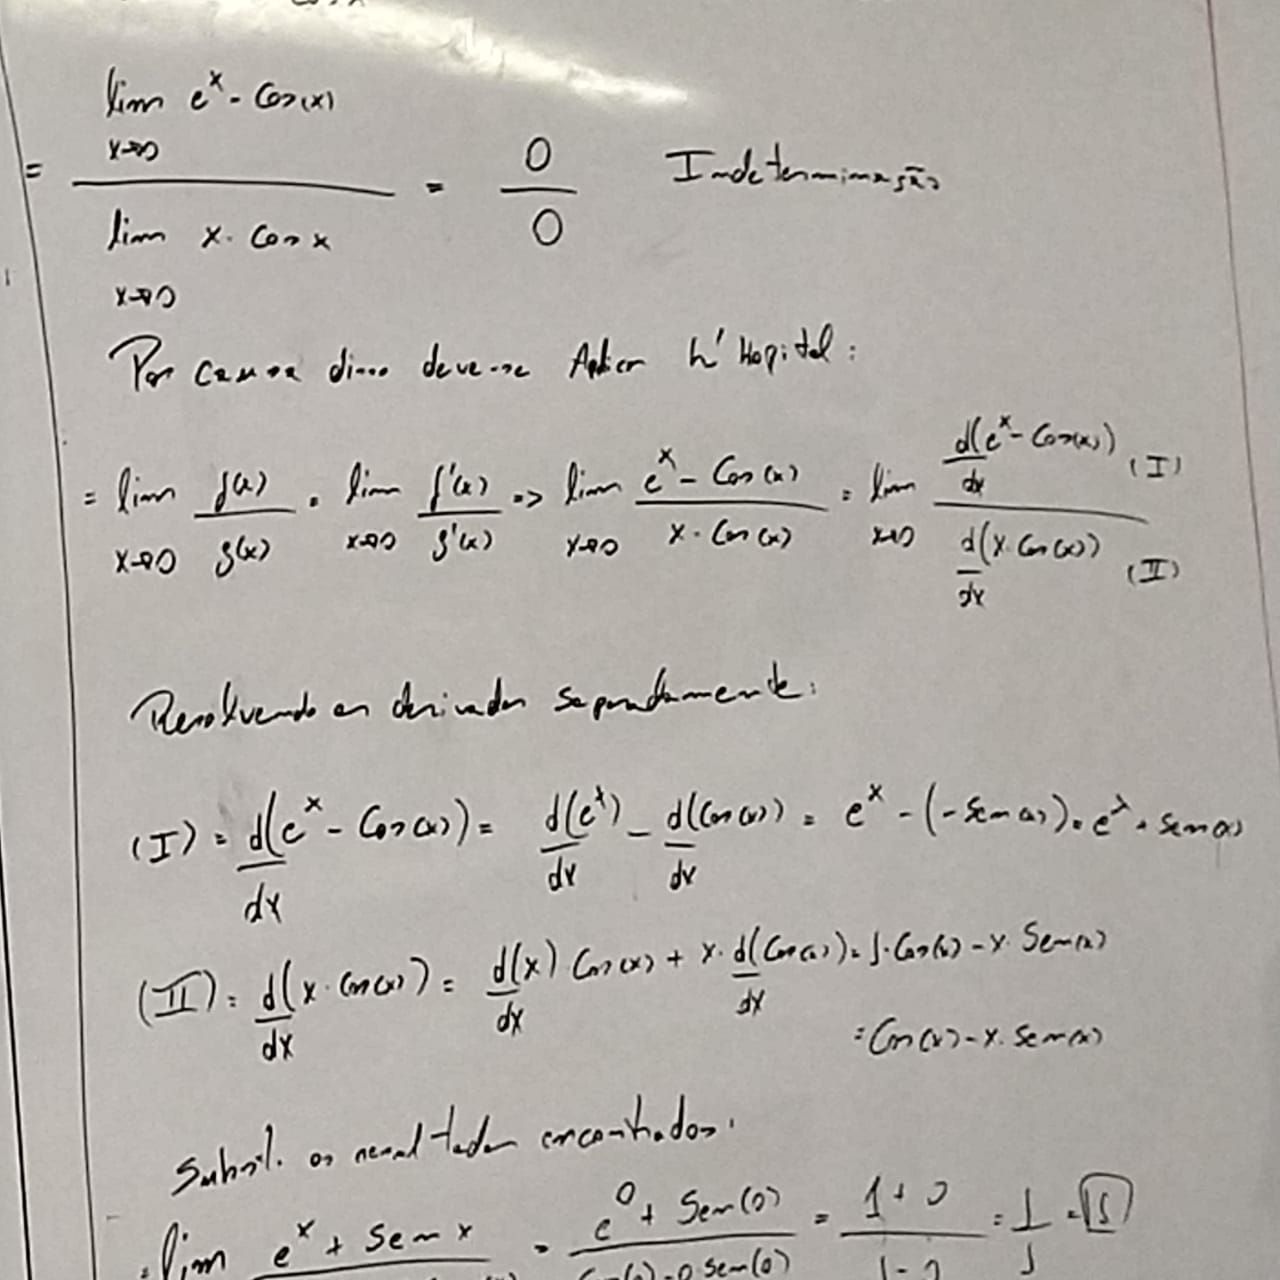 lim e^x - Cos(x)
x→0
= ───────── = 0/0 Indeterminação
lim x . Cos x
x→0
Por causa disso deve-se Aplicar L' Hopital :
= lim f(x)/g(x) = lim f'(x)/g'(x) => lim (e^x - Cos(x))/(x . Cos(x)) = lim (d(e^x - Cos(x))/dx (I))/(d(x . Cos(x))/dx (II))
x→0 x→0 x→0 x→0
Resolvendo as derivadas separadamente:
(I) = d(e^x - Cos(x))/dx = d(e^x)/dx - d(Cos(x))/dx = e^x - (-Sen(x)) = e^x + Sen(x)
(II) = d(x . Cos(x))/dx = d(x)/dx Cos(x) + x . d(Cos(x))/dx = 1 . Cos(x) - x . Sen(x)
= Cos(x) - x . Sen(x)
Subst. os resultados encontrados.
= lim e^x + Sen x = e^0 + Sen(0) = 1 + 0 = 1/1 = 1
Cos(0) - 0 Sen(0) 1 - 0